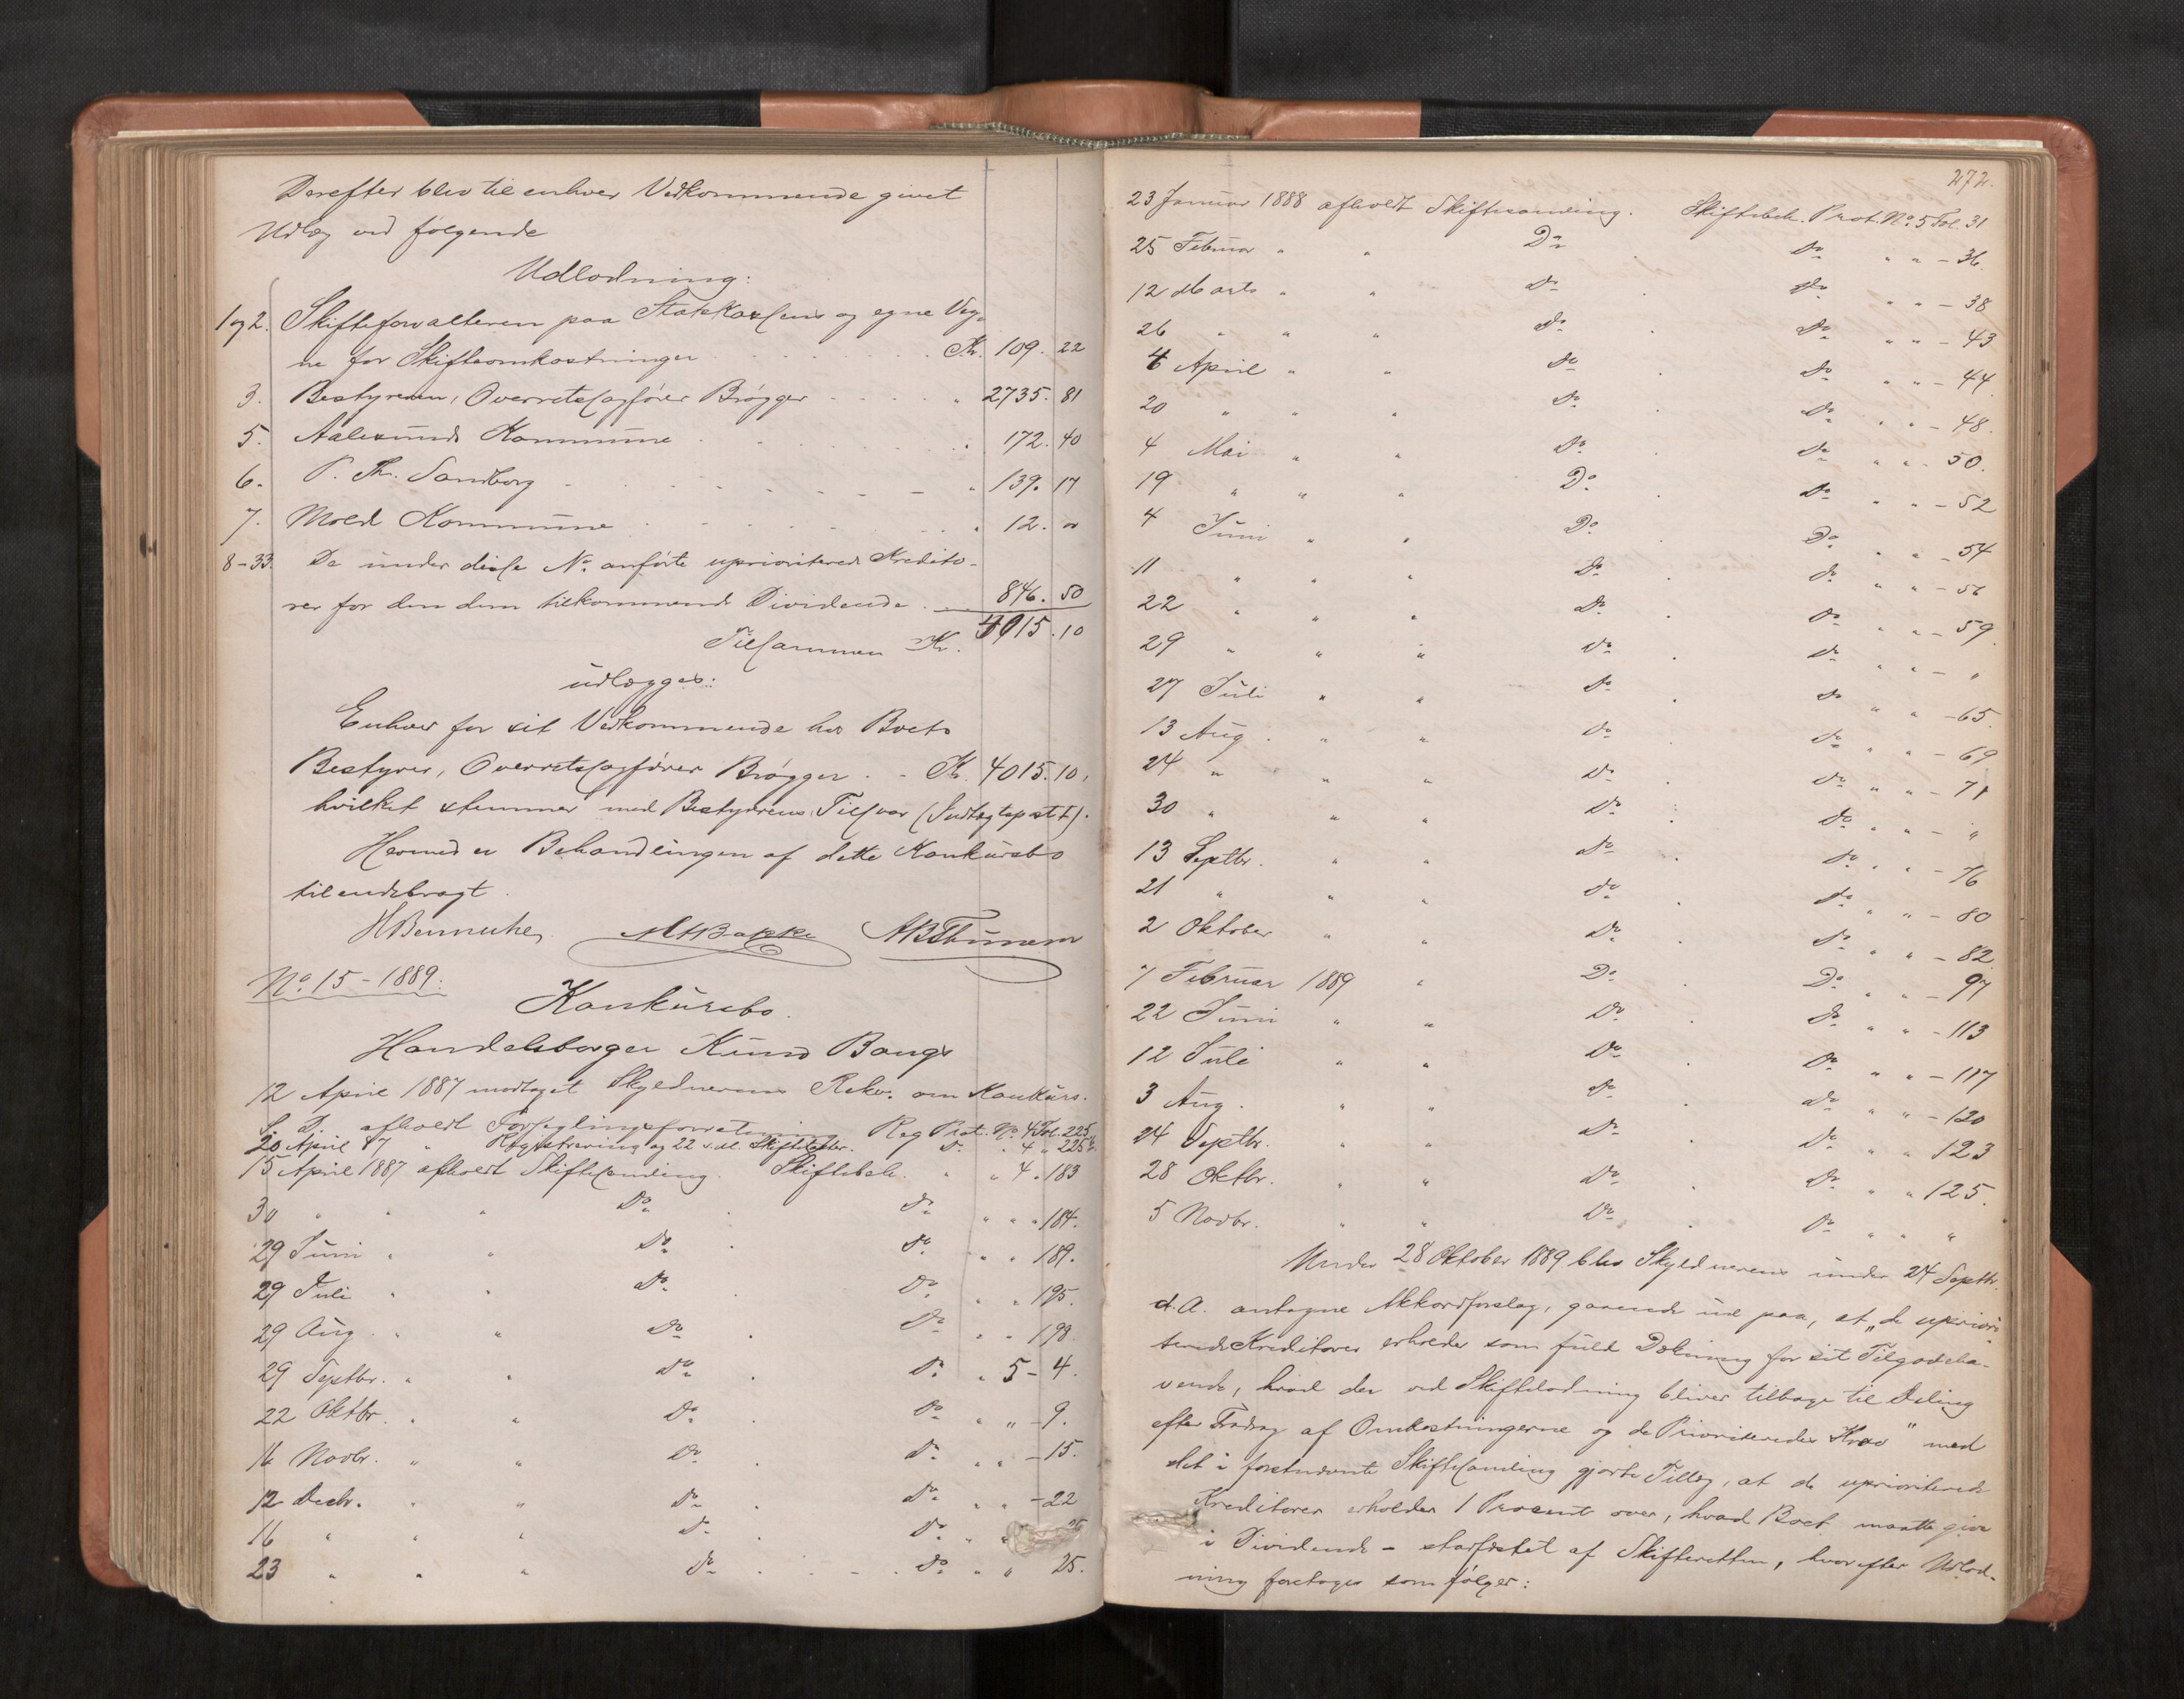 Derefter blev til enhver Vedkommende givet
Udlæg ved følgende
Udlodning:
1 og 2. Skifteforvalteren paa Statskassens og egne Veg-
ne for Skifteomkostninger Kr. 109. 22
3. Bestyreren, Overretssagfører Brøgger " 2735. 81
5. Aalesunds Kommune " 172. 40
6. P. Th. Sandborg " 139. 17
7. Molde Kommune " 12. "
8-33. De under disse No. anførte uprioriterede Kredito-
rer for den dem tilkommende Dividende 846. 50
Tilsammen Kr. 4015. 10
udlægges:
Enhver for sit Vedkommende hos Boets
Bestyrer, Overretssagfører Brøgger Kr. 4015. 10,
hvilket stemmer med Bestyrerens Tilsvar (Indtægtspost 1).
Hermed er Behandlingen af dette Konkursbo
tilendebragt.
HBenneche
No. 15 - 1889.
Konkursbo.
Handelsborger Knud Bangs
12 April 1887 modtaget Skyldnerens Rekv. om Konkurs.
S. D. afholdt Forseglingsforretning Reg Prot. No. 4 Fol. 225
20 April 87 " Registrering og 22 s. M. Skifte Do. " 4 " 225
15 April 1887 afholdt Skiftesamling. Skiftebeh. " " 4 " 183
30 " " " Do. Do. " " " 184.
29 Juni " " Do. Do. " " 189.
29 Juli " " Do. Do. " " 195.
29 Aug. " " Do. Do. " " 198
29 Septbr. " " Do. Do. " " 5 - 4.
22 Oktbr. " " Do. Do. " " - 9.
16 Novbr. " " Do. Do. " " - 15.
12 Decbr. " " Do. Do. " " - 22
16 " " " Do. Do. " "
23 " " " Do. Do. " " 25.
272.
23 Januar 1888 afholdt Skiftesamling. Skiftebeh. Prot. No. 5 Fol. 31
25 Februar " " Do. Do. " " - 36.
12 Marts " " Do. Do. " " - 38
26 " " " Do. Do. " " - 43
6 April " " Do. Do. " " - 44
20 " " " Do. Do. " " - 48.
4 Mai " " Do. Do. " " - 50.
19 " " " Do. Do. " " - 52
4 Juni " " Do. Do. " " - 54
11 " " " Do. Do. " " - 56
22 " " " Do. Do. " " - 59
29 " " " Do. Do. " " - "
27 Juli " " Do. Do. " " - 65.
13 Aug. " " Do. Do. " " - 69
24 " " " Do. Do. " " - 71
30 " " " Do. Do. " " - "
13 Septbr. " " Do. Do. " " - 76
21 " " " Do. Do. " " - 80
2 Oktober " " Do. Do. " " - 82
7 Februar 1889 " Do. Do. " " - 97
22 Juni " " Do. Do. " " - 113
12 Juli " " Do. Do. " " - 117
3 Aug. " " Do. Do. " " - 120
24 Septbr. " " Do. Do. " " 123
28 Oktbr. " " Do. Do. " " 125.
5 Novbr. " " Do. Do. " " "
Under 28 Oktober 1889 blev Skyldnerens under 24 Septbr.
d. A. antagne Akkordforslag, gaaende ud paa, at "de upriori-
terede Kreditorer erholder som fuld Dækning for sit Tilgodeha-
vende, hvad der ved Skiftelodning bliver tilbage til Deling
efter Fradrag af Omkostningerne og de Prioriteredes Krav" med
det i foretnævnte Skiftesamling gjorte Tillæg, at de uprioriterede
Kreditorer erholder 1 Procent over, hvad Boet maatte give
i Dividende - stadfæstet af Skifteretten, hvorefter Udlod-
ning foretages som følger: